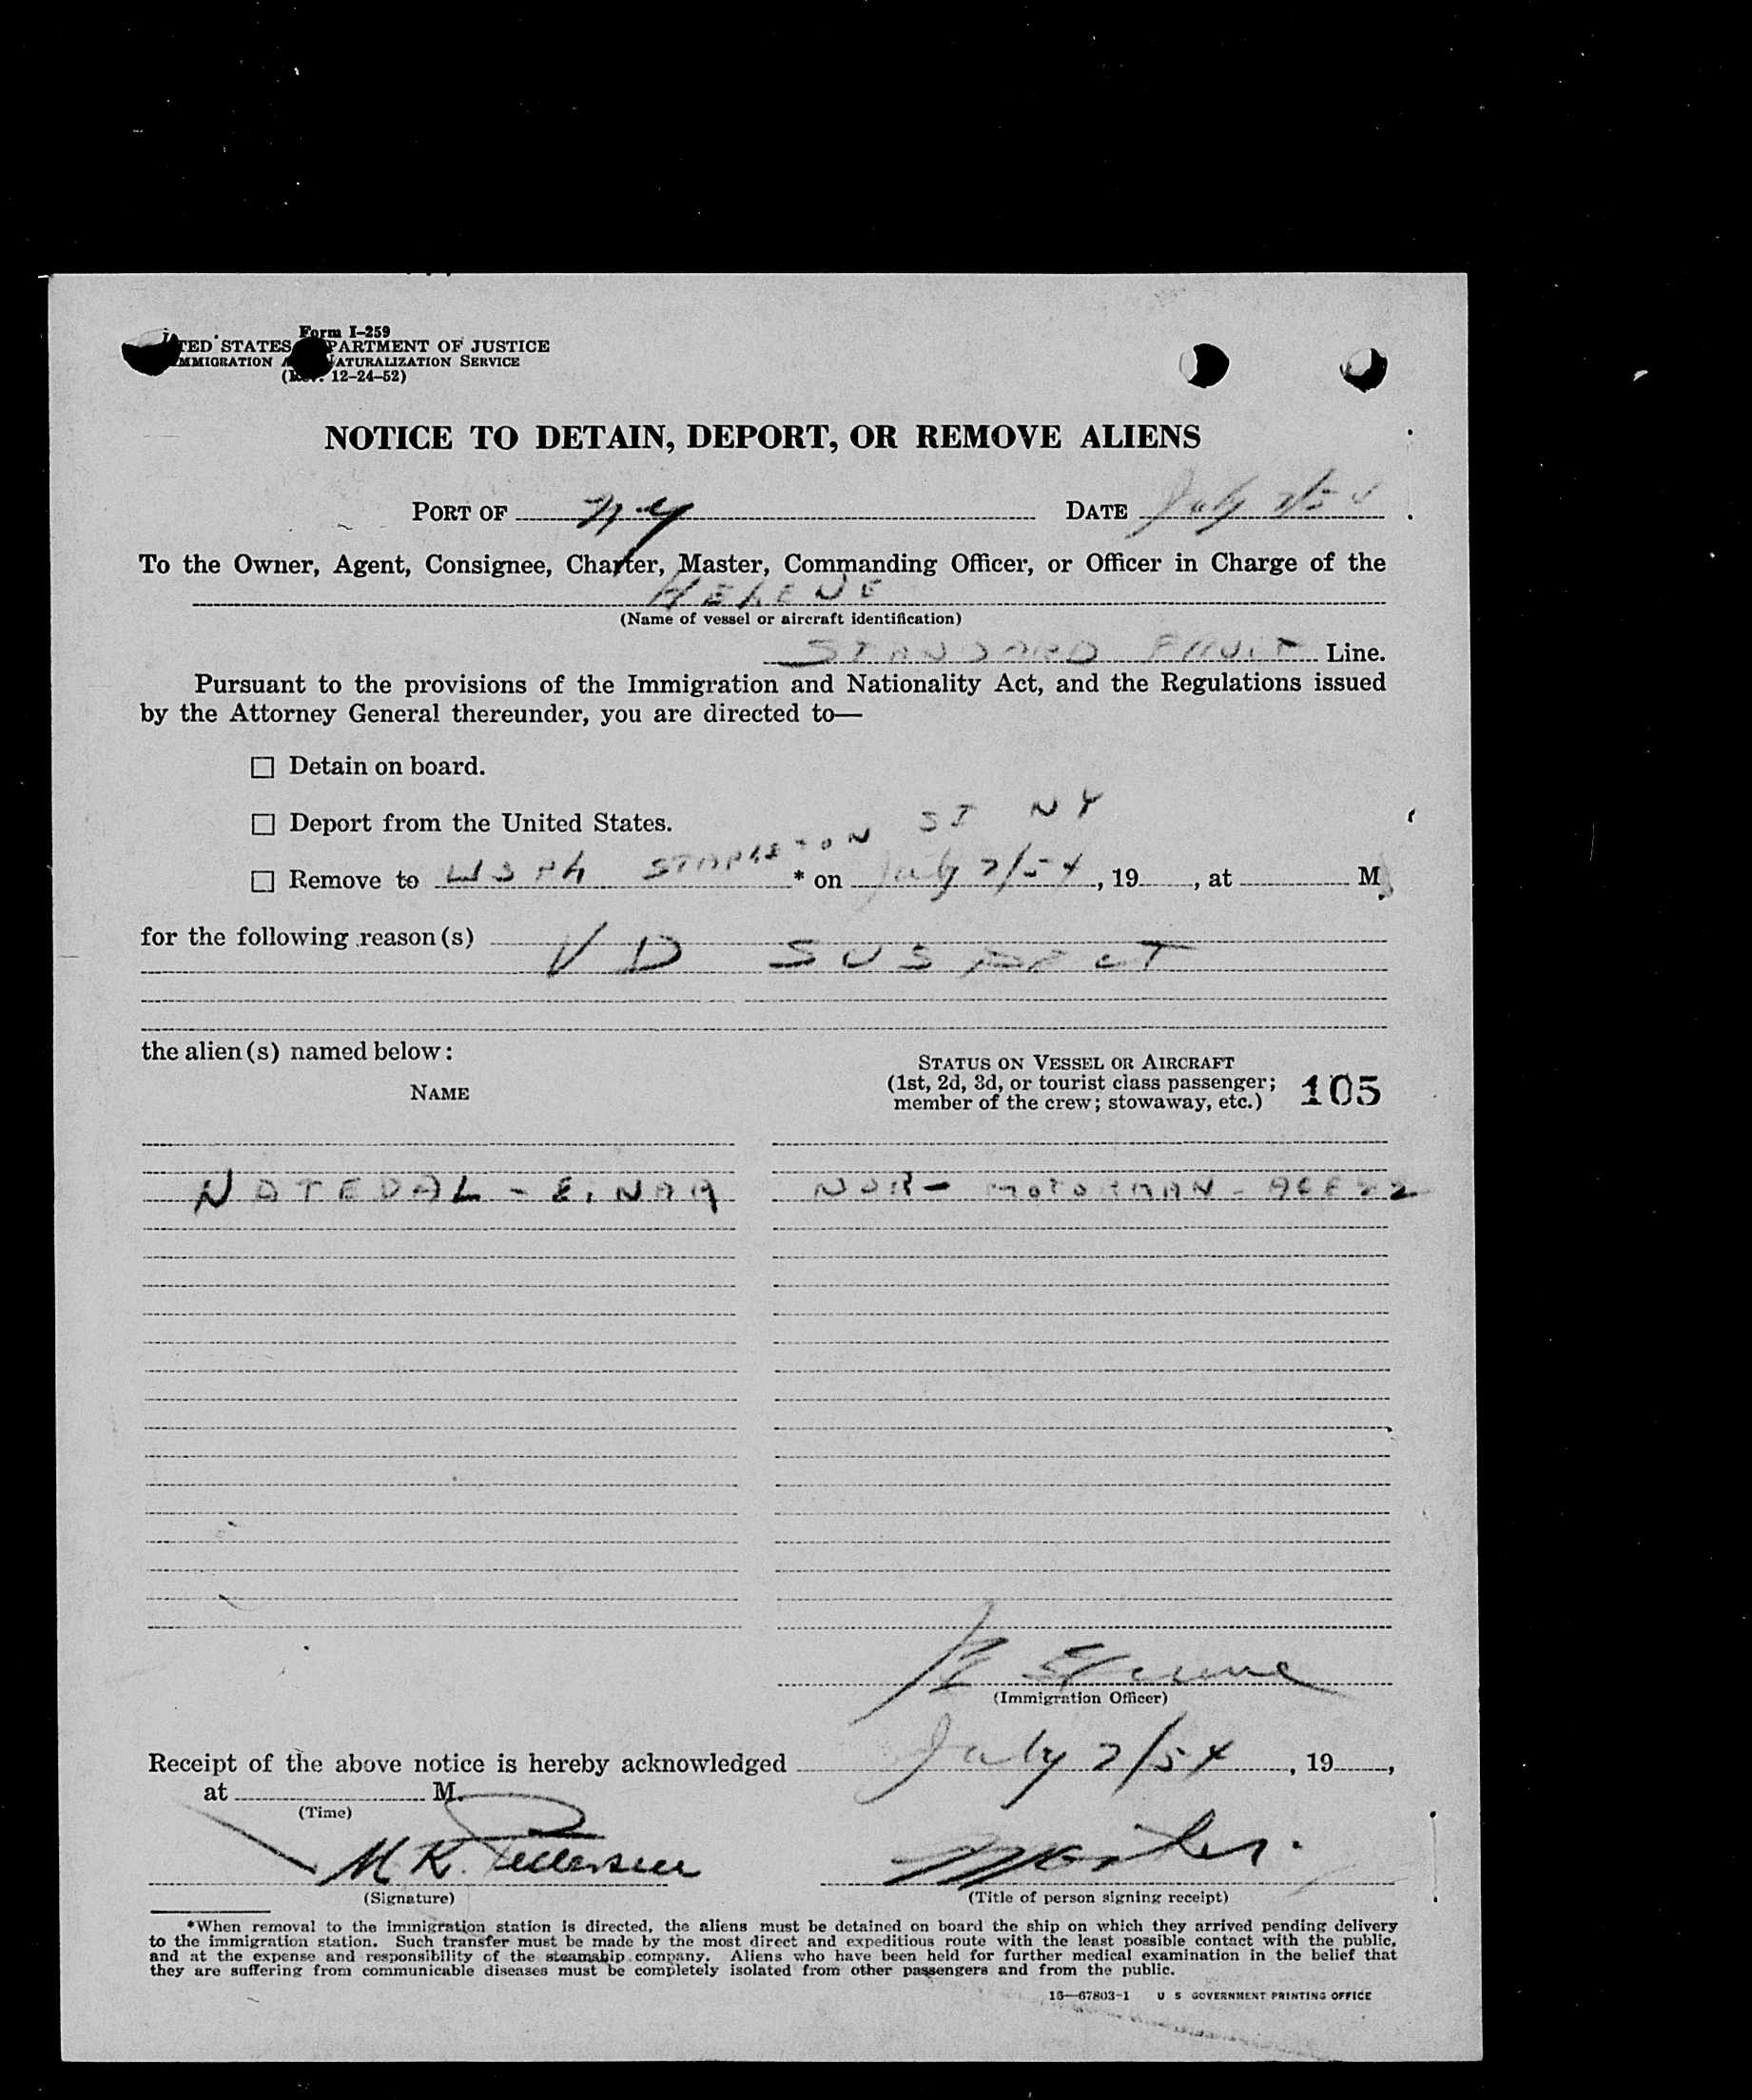 Form I-259
TED STATES PARTMENT OF JUSTICE
MMIGRATION A NATURALIZATION SERVICE
(Rev. 12-24-52)
NOTICE TO DETAIN, DEPORT, OR REMOVE ALIENS
PORT OF N.Y DATE July 2/54
To the Owner, Agent, Consignee, Charter, Master, Commanding Officer, or Officer in Charge of the
HELENE
(Name of vessel or aircraft identification)
STANDARD FRUIT Line.
Pursuant to the provisions of the Immigration and Nationality Act, and the Regulations issued
by the Attorney General thereunder, you are directed to—
☐ Detain on board.
☐ Deport from the United States.
☐ Remove to STAPLETON SI NY * on July 2/54, 19 , at M
for the following reason(s)
VD SUSPECT
the alien(s) named below:
NAME
STATUS ON VESSEL OR AIRCRAFT
(1st, 2d, 3d, or tourist class passenger;
member of the crew; stowaway, etc.)
105
NATEDAL - EINAR NOR - MOTORMAN - AGE 22
(Immigration Officer)
Receipt of the above notice is hereby acknowledged July 2/54, 19 ,
at M.
(Time)
M K. Pettersen Master.
(Signature) (Title of person signing receipt)
*When removal to the immigration station is directed, the aliens must be detained on board the ship on which they arrived pending delivery
to the immigration station. Such transfer must be made by the most direct and expeditious route with the least possible contact with the public,
and at the expense and responsibility of the steamship company. Aliens who have been held for further medical examination in the belief that
they are suffering from communicable diseases must be completely isolated from other passengers and from the public.
16—67803-1 U S GOVERNMENT PRINTING OFFICE